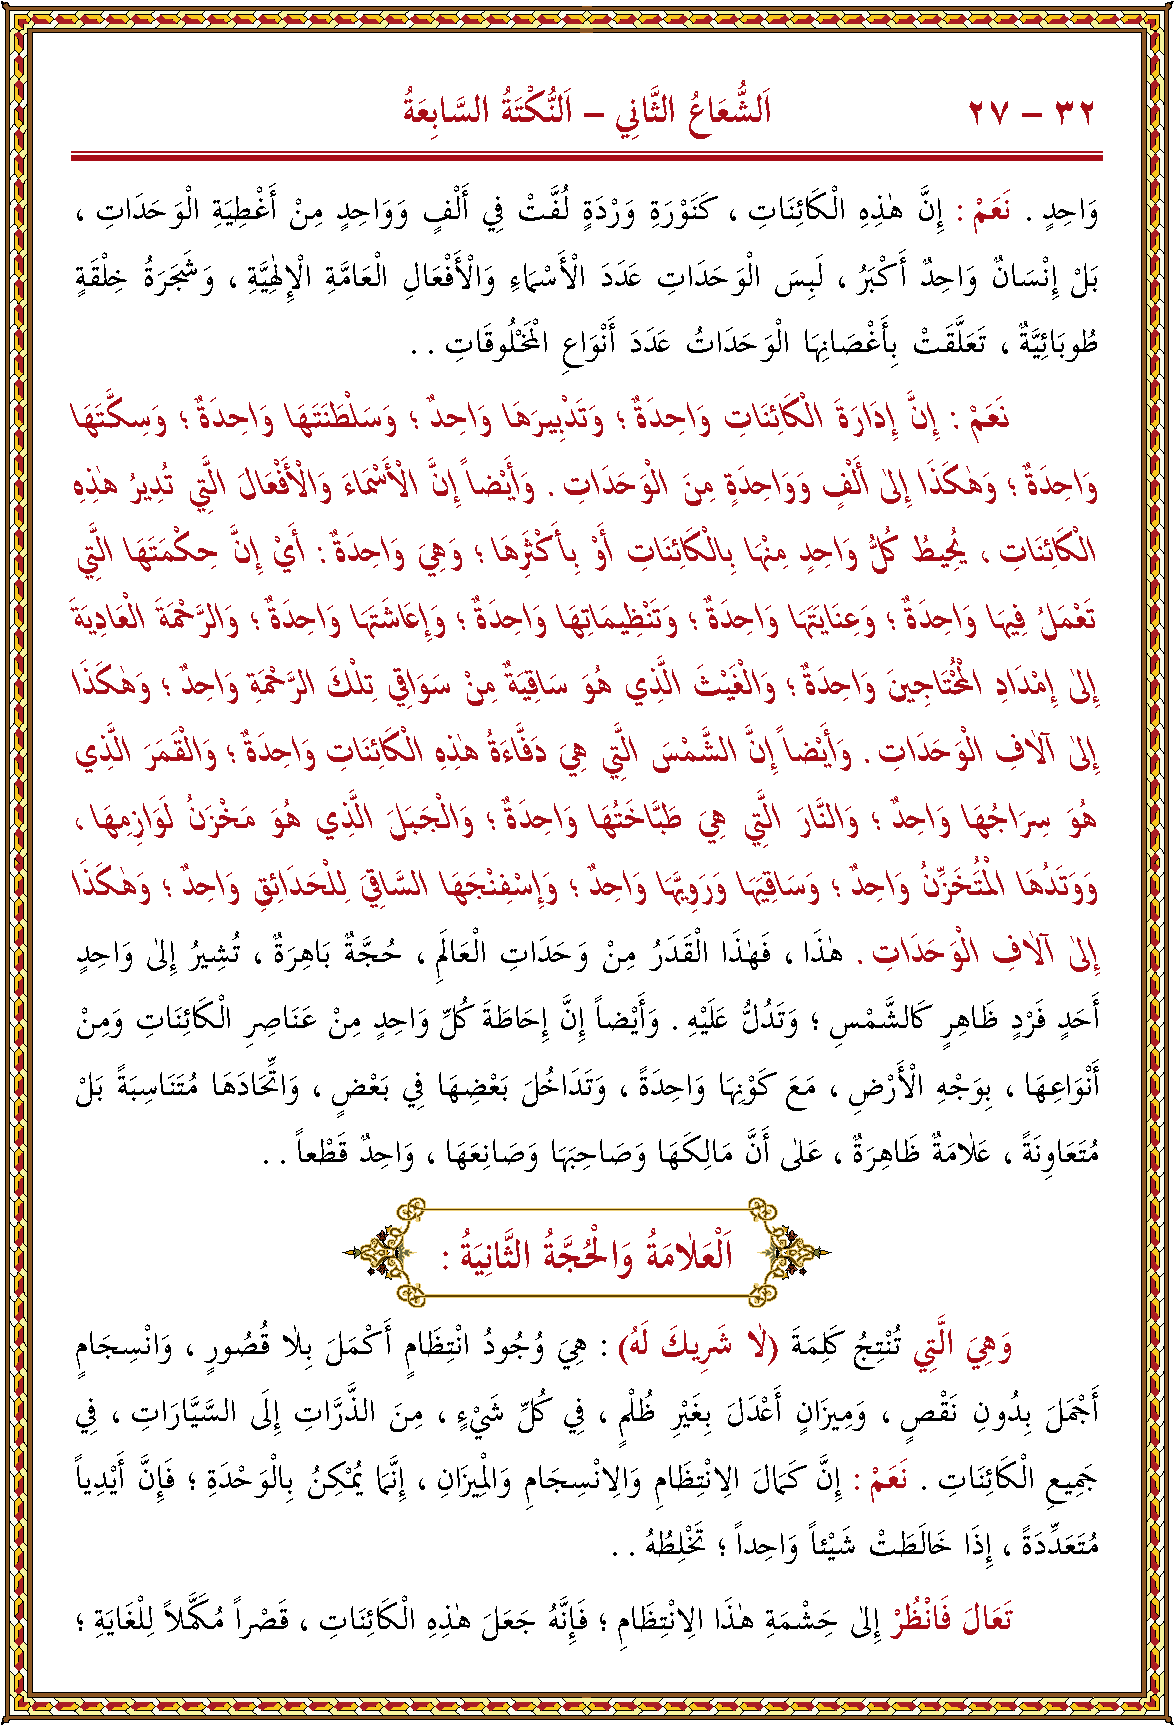 ٣٢ – ٢٧ اَلشُّعَاعُ الثَّانِي – اَلنُّكْتَةُ السَّابِعَةُ
وَاحِدٍ . نَعَمْ : إِنَّ هٰذِهِ الْكَائِنَاتِ ، كَنَوْرَةِ وَرْدَةٍ لُفَّتْ فِي أَلْفٍ وَوَاحِدٍ مِنْ أَغْطِيَةِ الْوَحَدَاتِ ،
بَلْ إِنْسَانٌ وَاحِدٌ أَكْبَرُ ، لَبِسَ الْوَحَدَاتِ عَدَدَ الْأَسْمَاءِ وَالْأَفْعَالِ الْعَامَّةِ الْإِلٰهِيَّةِ ، وَشَجَرَةُ خِلْقَةٍ
طُوبَائِيَّةٌ ، تَعَلَّقَتْ بِأَغْصَانِهَا الْوَحَدَاتُ عَدَدَ أَنْوَاعِ الْمَخْلُوقَاتِ . .
نَعَمْ : إِنَّ إِدَارَةَ الْكَائِنَاتِ وَاحِدَةٌ ؛ وَتَدْبِيرَهَا وَاحِدٌ ؛ وَسَلْطَنَتَهَا وَاحِدَةٌ ؛ وَسِكَّتَهَا
وَاحِدَةٌ ؛ وَهٰكَذَا إِلٰى أَلْفٍ وَوَاحِدَةٍ مِنَ الْوَحَدَاتِ . وَأَيْضاً إِنَّ الْأَسْمَاءَ وَالْأَفْعَالَ الَّتِي تُدِيرُ هٰذِهِ
الْكَائِنَاتِ ، يُحِيطُ كُلُّ وَاحِدٍ مِنْهَا بِالْكَائِنَاتِ أَوْ بِأَكْثَرِهَا ؛ وَهِيَ وَاحِدَةٌ : أَيْ إِنَّ حِكْمَتَهَا الَّتِي
تَعْمَلُ فِيهَا وَاحِدَةٌ ؛ وَعِنَايَتَهَا وَاحِدَةٌ ؛ وَتَنْظِيمَاتِهَا وَاحِدَةٌ ؛ وَإِعَاشَتَهَا وَاحِدَةٌ ؛ وَالرَّحْمَةَ الْعَادِيَةَ
إِلٰى إِمْدَادِ الْمُحْتَاجِينَ وَاحِدَةٌ ؛ وَالْغَيْثَ الَّذِي هُوَ سَاقِيَةٌ مِنْ سَوَاقِي تِلْكَ الرَّحْمَةِ وَاحِدٌ ؛ وَهٰكَذَا
إِلٰى آلَافِ الْوَحَدَاتِ . وَأَيْضاً إِنَّ الشَّمْسَ الَّتِي هِيَ دَفَّاءَةُ هٰذِهِ الْكَائِنَاتِ وَاحِدَةٌ ؛ وَالْقَمَرَ الَّذِي
هُوَ سِرَاجُهَا وَاحِدٌ ؛ وَالنَّارَ الَّتِي هِيَ طَبَّاخَتُهَا وَاحِدَةٌ ؛ وَالْجَبَلَ الَّذِي هُوَ مَخْزَنُ لَوَازِمِهَا ،
وَوَتَدُهَا الْمُتَخَزِّنُ وَاحِدٌ ؛ وَسَاقِيَهَا وَرَوِيَّهَا وَاحِدٌ ؛ وَإِسْفِنْجَهَا السَّاقِيَ لِلْحَدَائِقِ وَاحِدٌ ؛ وَهٰكَذَا
إِلٰى آلَافِ الْوَحَدَاتِ . هٰذَا ، فَهٰذَا الْقَدَرُ مِنْ وَحَدَاتِ الْعَالَمِ ، حُجَّةٌ بَاهِرَةٌ ، تُشِيرُ إِلٰى وَاحِدٍ
أَحَدٍ فَرْدٍ ظَاهِرٍ كَالشَّمْسِ ؛ وَتَدُلُّ عَلَيْهِ . وَأَيْضاً إِنَّ إِحَاطَةَ كُلِّ وَاحِدٍ مِنْ عَنَاصِرِ الْكَائِنَاتِ وَمِنْ
أَنْوَاعِهَا ، بِوَجْهِ الْأَرْضِ ، مَعَ كَوْنِهَا وَاحِدَةً ، وَتَدَاخُلَ بَعْضِهَا فِي بَعْضٍ ، وَاتِّحَادَهَا مُتَنَاسِبَةً بَلْ
مُتَعَاوِنَةً ، عَلَامَةٌ ظَاهِرَةٌ ، عَلٰى أَنَّ مَالِكَهَا وَصَاحِبَهَا وَصَانِعَهَا ، وَاحِدٌ قَطْعاً . .
اَلْعَلَامَةُ وَالْحُجَّةُ الثَّانِيَةُ :
وَهِيَ الَّتِي تُنْتِجُ كَلِمَةَ (لَا شَرِيكَ لَهُ) : هِيَ وُجُودُ انْتِظَامٍ أَكْمَلَ بِلَا قُصُورٍ ، وَانْسِجَامٍ
أَجْمَلَ بِدُونِ نَقْصٍ ، وَمِيزَانٍ أَعْدَلَ بِغَيْرِ ظُلْمٍ ، فِي كُلِّ شَيْءٍ ، مِنَ الذَّرَّاتِ إِلَى السَّيَّارَاتِ ، فِي
جَمِيعِ الْكَائِنَاتِ . نَعَمْ : إِنَّ كَمَالَ الِانْتِظَامِ وَالِانْسِجَامِ وَالْمِيزَانِ ، إِنَّمَا يُمْكِنُ بِالْوَحْدَةِ ؛ فَإِنَّ أَيْدِياً
مُتَعَدِّدَةً ، إِذَا خَالَطَتْ شَيْئاً وَاحِداً ؛ تَخْلِطُهُ . .
تَعَالَ فَانْظُرْ إِلٰى حَشْمَةِ هٰذَا الِانْتِظَامِ ؛ فَإِنَّهُ جَعَلَ هٰذِهِ الْكَائِنَاتِ ، قَصْراً مُكَمَّلاً لِلْغَايَةِ ؛